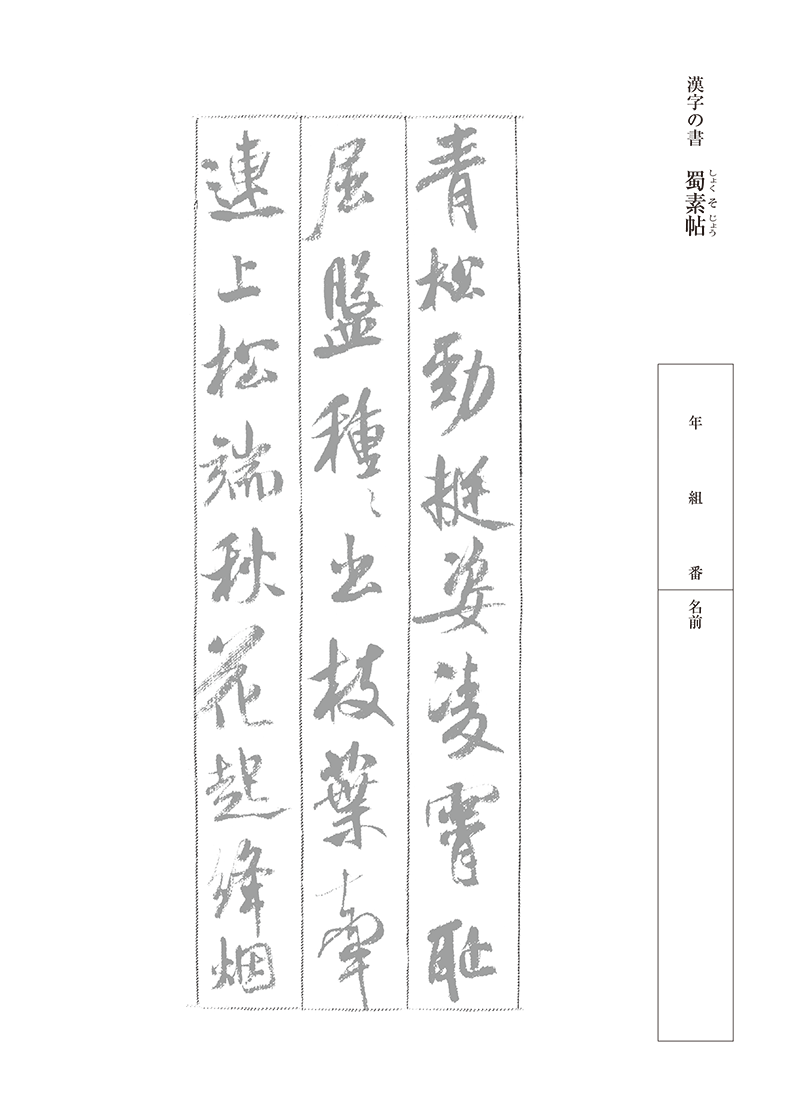 漢字の書 蜀素帖
しょく そ じょう
年 組 番 名前
青松勁挺姿凌霄耻
屈盤種〻出枝葉牽
連上松端秋花起絳烟